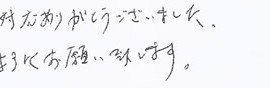 対応ありがとうございました。
よろしくお願い致します。